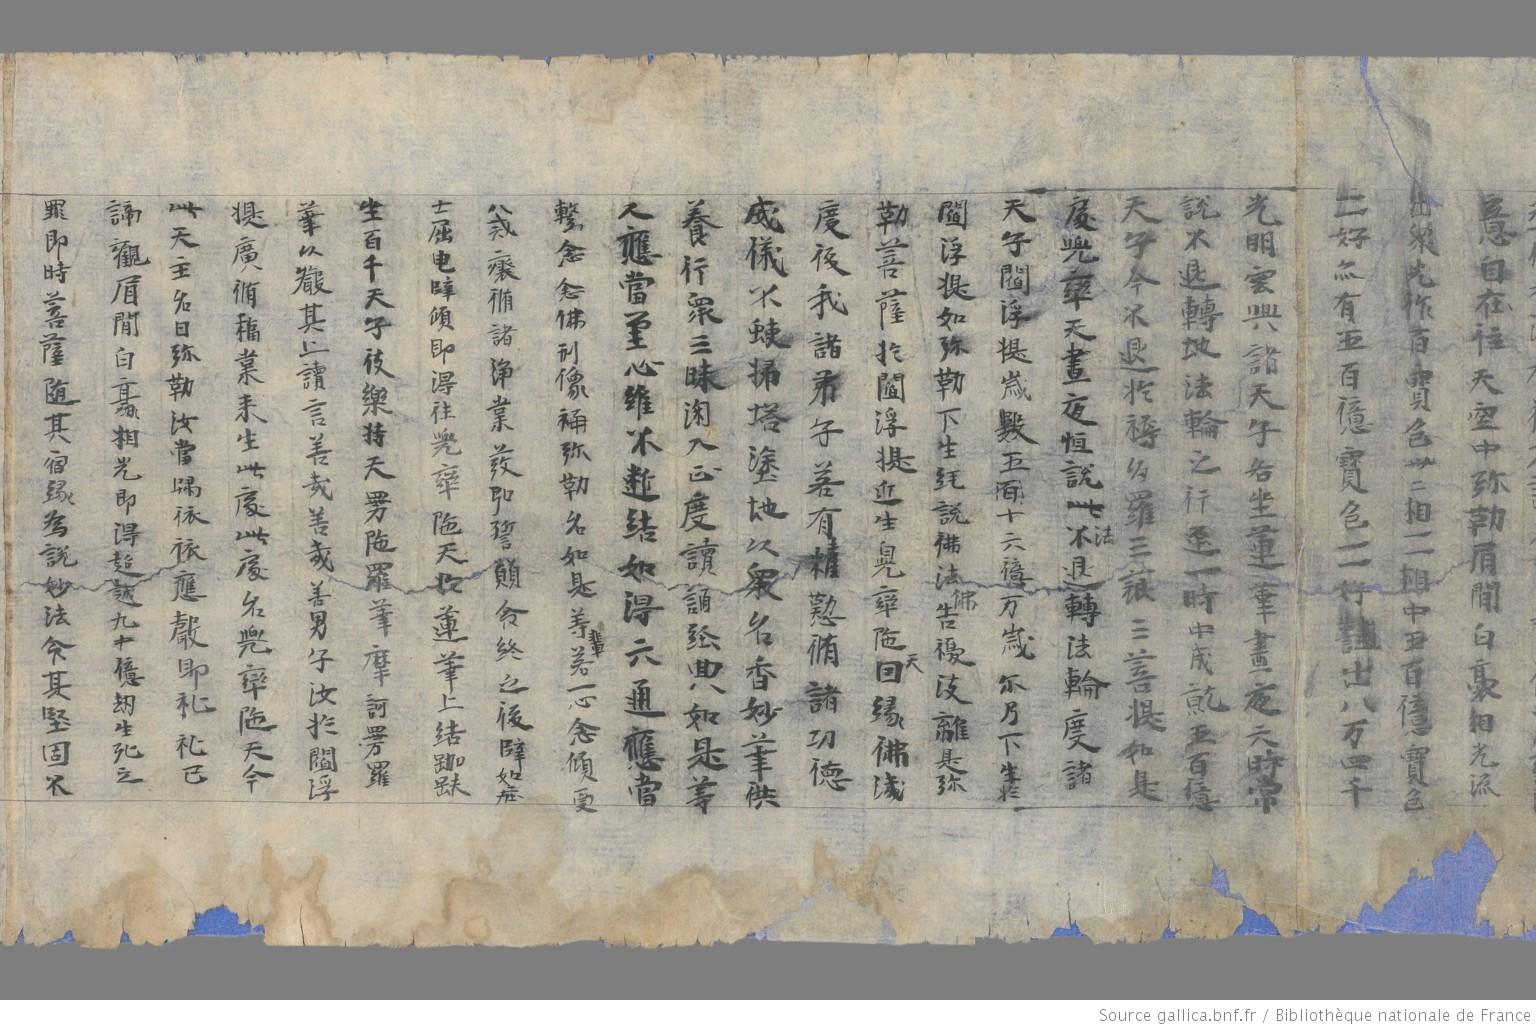 意自在往天空中弥勒眉間白豪相光流
出衆光作百寶色卅二相一一相中五百億寶色
一一好亦有五百億寶色一一行豔出八万四千
光明雲與諸天子各坐蓮華晝夜六時常
說不退轉地法輪之行逕一時中成就五百億
天子令不退於耨多羅三藐三菩提如是
處兜率天晝夜恒說此不退轉法輪度諸
法
天子閻浮提歲數五百十六億万歲尓乃下生於
閻浮提如弥勒下生經說佛法告優波離是弥
佛
勒菩薩於閻浮提迊生兜率陁因緣佛滅
天
度後我諸弟子若有精懃脩諸功德
威儀不𡙇掃塔塗地以衆名香妙華供
養行衆三昧深入正度讀誦經典如是等
人應當至心維不斷結如得六通應當
繫念念佛刑像稱弥勒名如是等若一心念傾更
輩
八戒齋脩諸淨業發弘誓願命終之後臂如壯
士屈申臂傾即得往兜率陁天於蓮華上結跏趺
坐百千天子伎樂持天男陁羅華摩訶男羅
華以散其上讚言善哉善哉善男子汝於閻浮
提廣脩福業来生此處此處名兜率陁天今
此天主名曰弥勒汝當歸依依應聲即礼礼已
諦觀眉間白豪相光即得超越九十億劫生死之
罪即時菩薩随其宿緣為說妙法令其堅固不